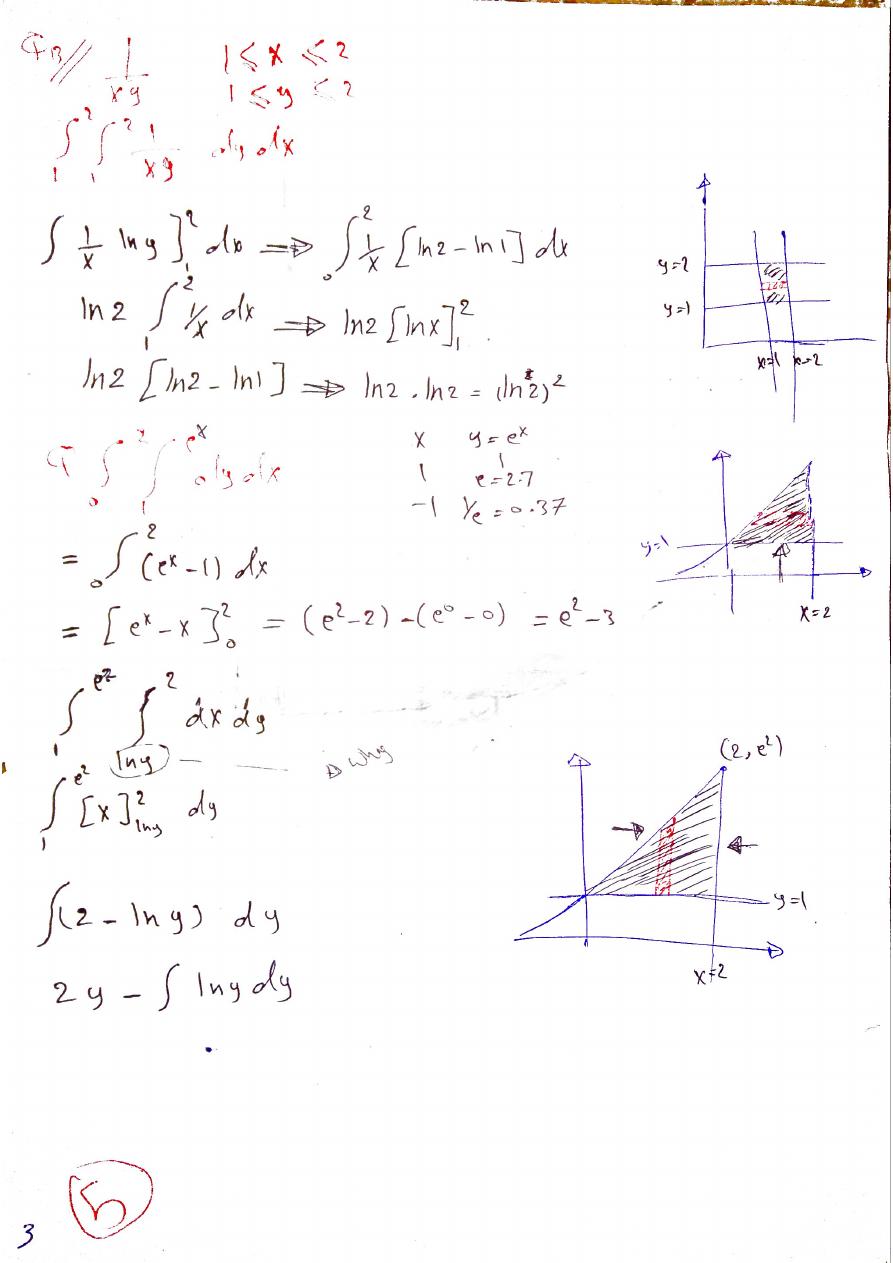 Q13// 1/xy 1 ≤ x ≤ 2
1 ≤ y ≤ 2
∫₁² ∫₁² 1/xy dy dx
∫ 1/x ln y]₁² dx ⇒ ∫₀² 1/x [ln2 - ln1] dx
ln 2 ∫₁² 1/x dx ⇒ ln2 [lnx]₁²
ln2 [ln2 - ln1] ⇒ ln2 . ln2 = (ln 2)²
y=2
y=1
x=1 x=2
Q ∫₀² ∫₁^(e^x) dy dx
x y = e^x
1
1 e = 2.7
-1 1/e = 0.37
= ₀∫² (e^x - 1) dx
= [e^x - x]₀² = (e² - 2) - (e⁰ - 0) = e² - 3
y=1
x=2
∫₁^(e²) ∫_(ln y)² dx dy
why
∫₁^(e²) [x]_(ln y)² dy
∫(2 - ln y) dy
2y - ∫ ln y dy
(2, e²)
y=1
x=2
5
3